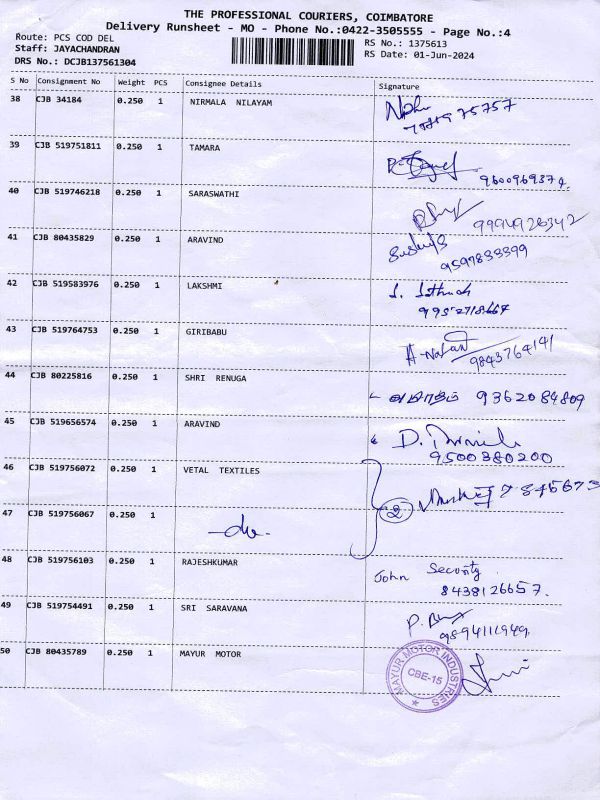 THE PROFESSIONAL COURIERS, COIMBATORE
Delivery Runsheet - MO - Phone No.:0422-3505555 - Page No.:4
Route: PCS COD DEL
Staff: JAYACHANDRAN
DRS No.: DCJB137561304
RS No.: 1375613
RS Date: 01-Jun-2024
S No Consignment No Weight PCS Consignee Details Signature
38 CJB 34184 0.250 1 NIRMALA NILAYAM
39 CJB 519751811 0.250 1 TAMARA
9600969374.
40 CJB 519746218 0.250 1 SARASWATHI
9994926342
41 CJB 80435829 0.250 1 ARAVIND
9597833399
42 CJB 519583976 0.250 1 LAKSHMI
9952718667
43 CJB 519764753 0.250 1 GIRIBABU
9843764141
44 CJB 80225816 0.250 1 SHRI RENUGA
9362084809
45 CJB 519656574 0.250 1 ARAVIND
D.
9500380200
46 CJB 519756072 0.250 1 VETAL TEXTILES
2
47 CJB 519756067 0.250 1 -do-
48 CJB 519756103 0.250 1 RAJESHKUMAR
John Security
8438126657.
49 CJB 519754491 0.250 1 SRI SARAVANA
9894111949
50 CJB 80435789 0.250 1 MAYUR MOTOR
MAYUR MOTOR INDUSTRIES
CBE-15